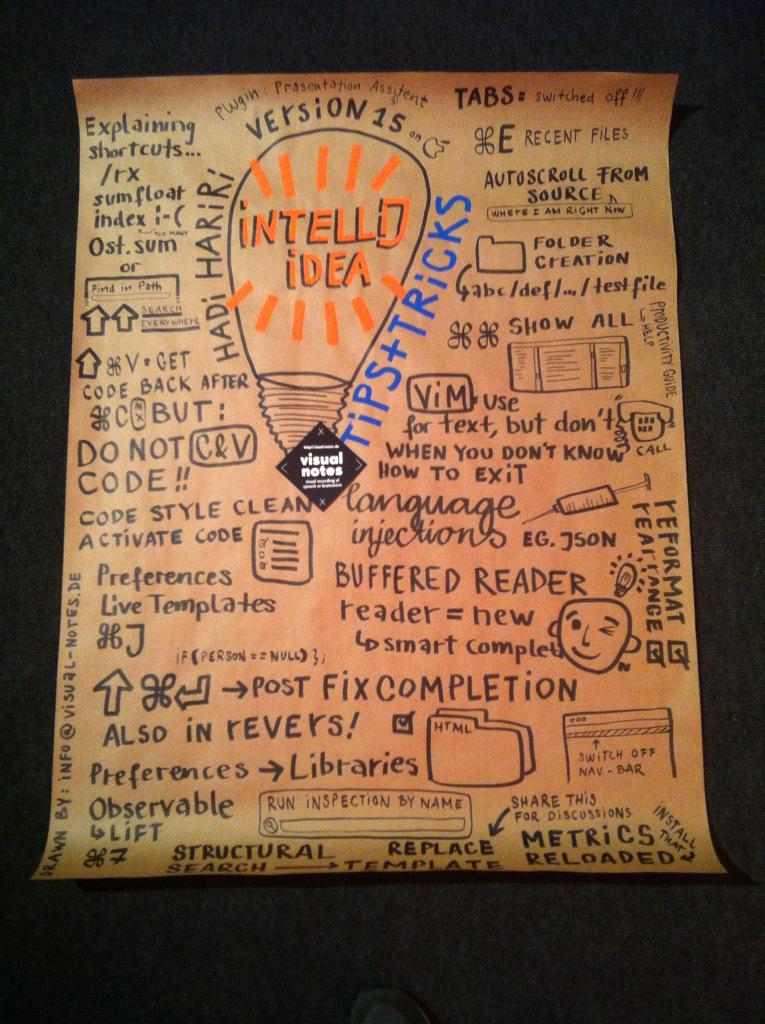 Plugin: Prasentation Assistent
VERSION 15
on
INTELLIJ
IDEA
HADI HARIRI
TIPS+TRICKS
http://visual-notes.de
visual
notes
visual recording of
speech or brainstorm
Explaining
shortcuts...
/rx
sumfloat
index i-(
TOO MANY
Ost.sum
or
Find in Path
⇧⇧ SEARCH
EVERYWHERE
⇧ ⌘ V = GET
CODE BACK AFTER
⌘C BUT:
DO NOT C&V
CODE!!
CODE STYLE CLEAN
ACTIVATE CODE
Preferences
Live Templates
⌘J
if(PERSON==NULL) };
⇧ ⌘ ↵ → POST FIX COMPLETION
ALSO IN REVERS!
Preferences → Libraries
Observable
↳ LIFT
⌘7
STRUCTURAL
SEARCH → TEMPLATE
REPLACE
RUN INSPECTION BY NAME
TABS: switched off!!!
⌘E RECENT FILES
AUTOSCROLL FROM
SOURCE
WHERE I AM RIGHT NOW
FOLDER
CREATION
↳abc/def/.../testfile
⌘ ⌘ SHOW ALL
PRODUCTIVITY GUIDE
↳ HELP
ViM: use
for text, but don't
CALL
WHEN YOU DON'T KNOW
HOW TO EXIT
language
injections EG. JSON
REFORMAT
REARRANGE
BUFFERED READER
reader = new
↳ smart complet
HTML
SWITCH OFF
NAV.-BAR
SHARE THIS
FOR DISCUSSIONS
METRICS
RELOADED
INSTALL
THAT
DRAWN BY: INFO@VISUAL-NOTES.DE